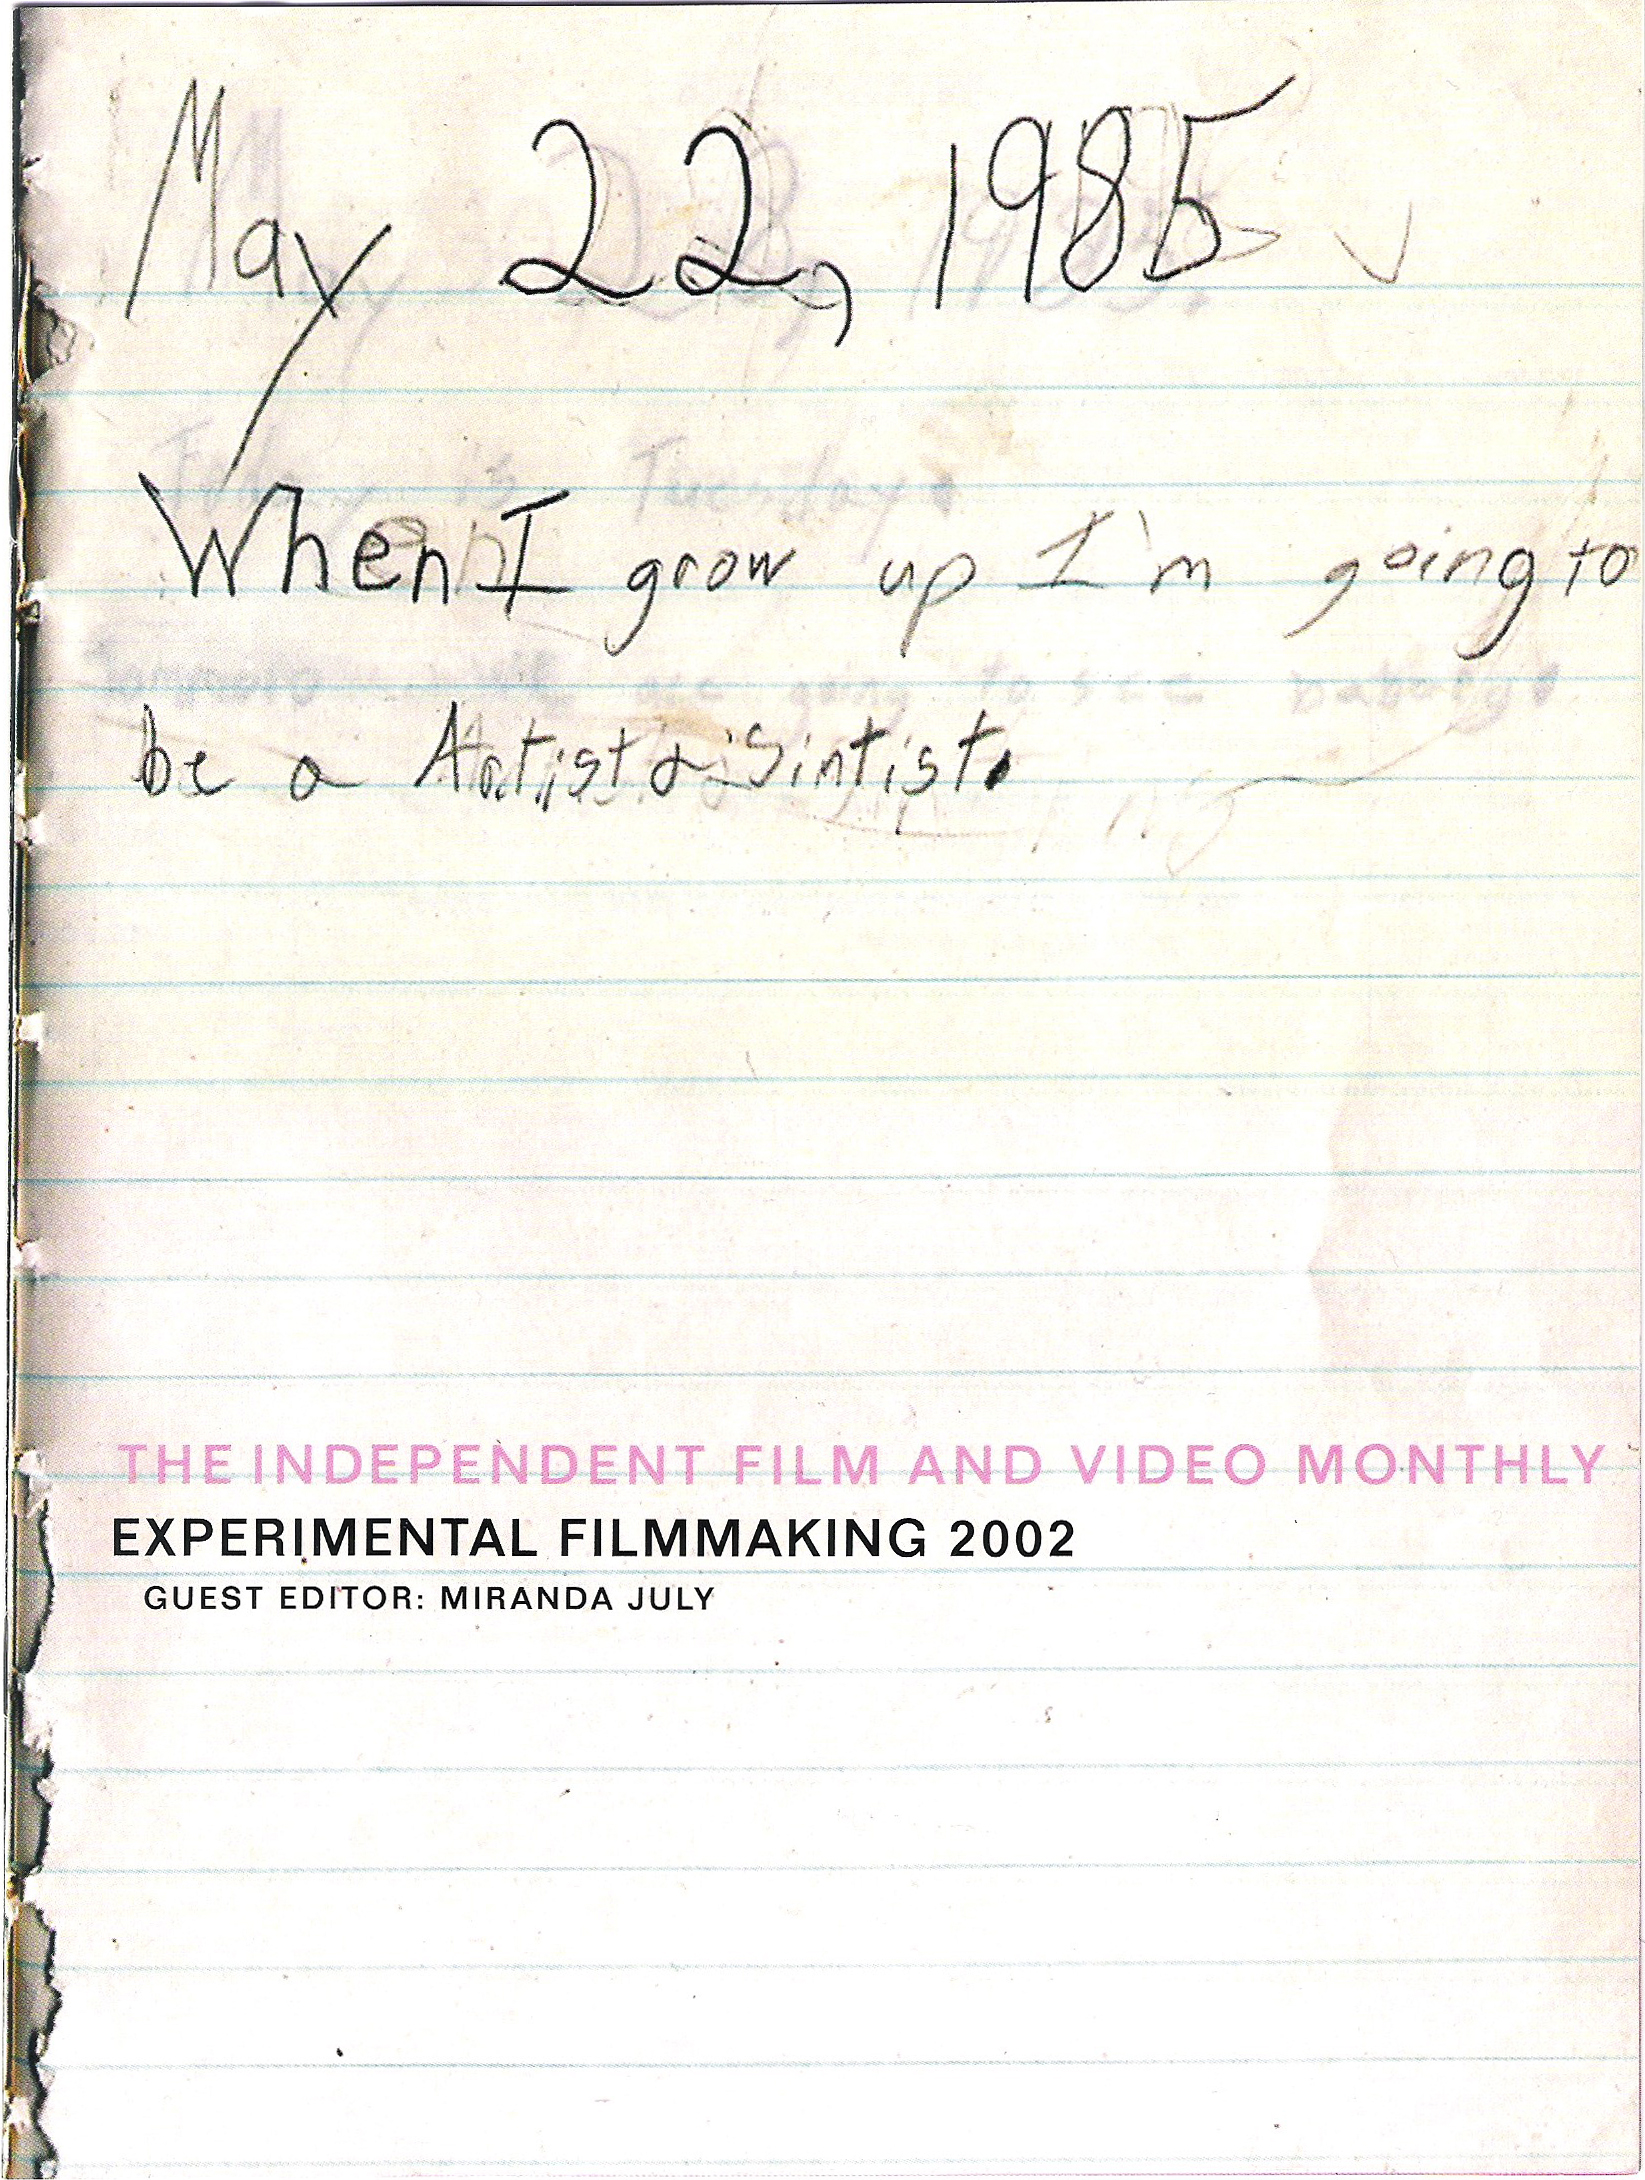 May 22, 1985
Today is Tuesday.
When I grow up I'm going to
we are going to see
be a Artist & Sintist.
THE INDEPENDENT FILM AND VIDEO MONTHLY
EXPERIMENTAL FILMMAKING 2002
GUEST EDITOR: MIRANDA JULY